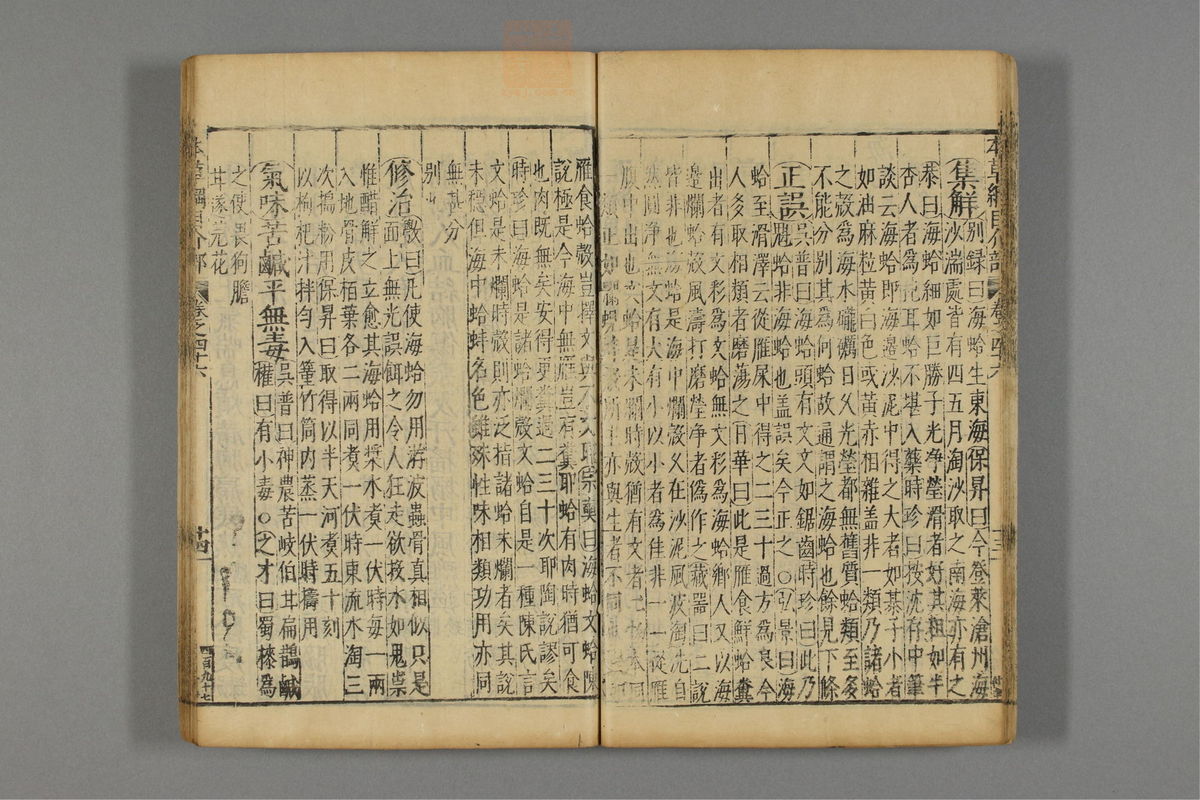 本草綱目介部 卷之四十六 十三
集解 别録曰海蛤生東海保昇曰今登萊滄州海
沙湍處皆有四五月淘沙取之南海亦有之
恭曰海蛤細如巨勝子光净瑩滑者好其粗如半
杏人者為㹠耳蛤不堪入藥時珍曰按沈存中筆
談云海蛤即海邊沙泥中得之大者如棊子小者
如油麻粒黄白色或黄赤相雜盖非一類乃諸蛤
之殻為海水礲礪日久光瑩都無舊質蛤類至多
不能分别其為何蛤故通謂之海蛤也餘見下條
正誤 吳普曰海蛤頭有文文如鋸齒時珍曰此乃
魁蛤非海蛤也盖誤矣今正之○弘景曰海
蛤至滑澤云從雁屎中得之二三十過方為良今
人多取相類者磨蕩之日華曰此是雁食鮮蛤糞
出者有文彩為文蛤無文彩為海蛤鄉人又以海
邊爛蛤殻風濤打磨瑩净者偽作之藏器曰二說
皆非也海蛤是海中爛殻久在沙泥風波淘洗自
然圓浄無文有大有小以小者為佳非一一從雁
腹中出也文蛤是未爛時殻猶有文者二物本同
一類正如爛蜆所主亦與生者不同
雁食蛤殻豈擇文與不文耶宗奭曰海蛤文蛤陳
說極是今海中無雁豈有糞耶蛤有肉時猶可食
也肉既無矣安得更糞過二三十次耶陶說謬矣
時珍曰海蛤是諸蛤爛殻文蛤自是一種陳氏言
文蛤是未爛時殻則亦泛指諸蛤未爛者矣其說
未穩但海中蛤蚌名色雖殊性味相類功用亦同
無甚分
别也
修治 斆曰凡使海蛤勿用游波蟲骨真相似只是
面上無光誤餌之令人狂走欲投水如鬼祟
惟醋解之立愈其海蛤用漿水煮一伏時每一兩
入地骨皮栢葉各二兩同煮一伏時東流水淘三
次搗粉用保昇曰取得以半天河煮五十刻
以枸杞汁拌匀入䈽竹筒内蒸一伏時擣用
氣味苦鹹平無毒 吳普曰神農苦岐伯甘扁鵲鹹
權曰有小毒○之才曰蜀漆為
之使畏狗膽
甘遂芫花
本草綱目介部 卷之四十六 十四 四百九十七